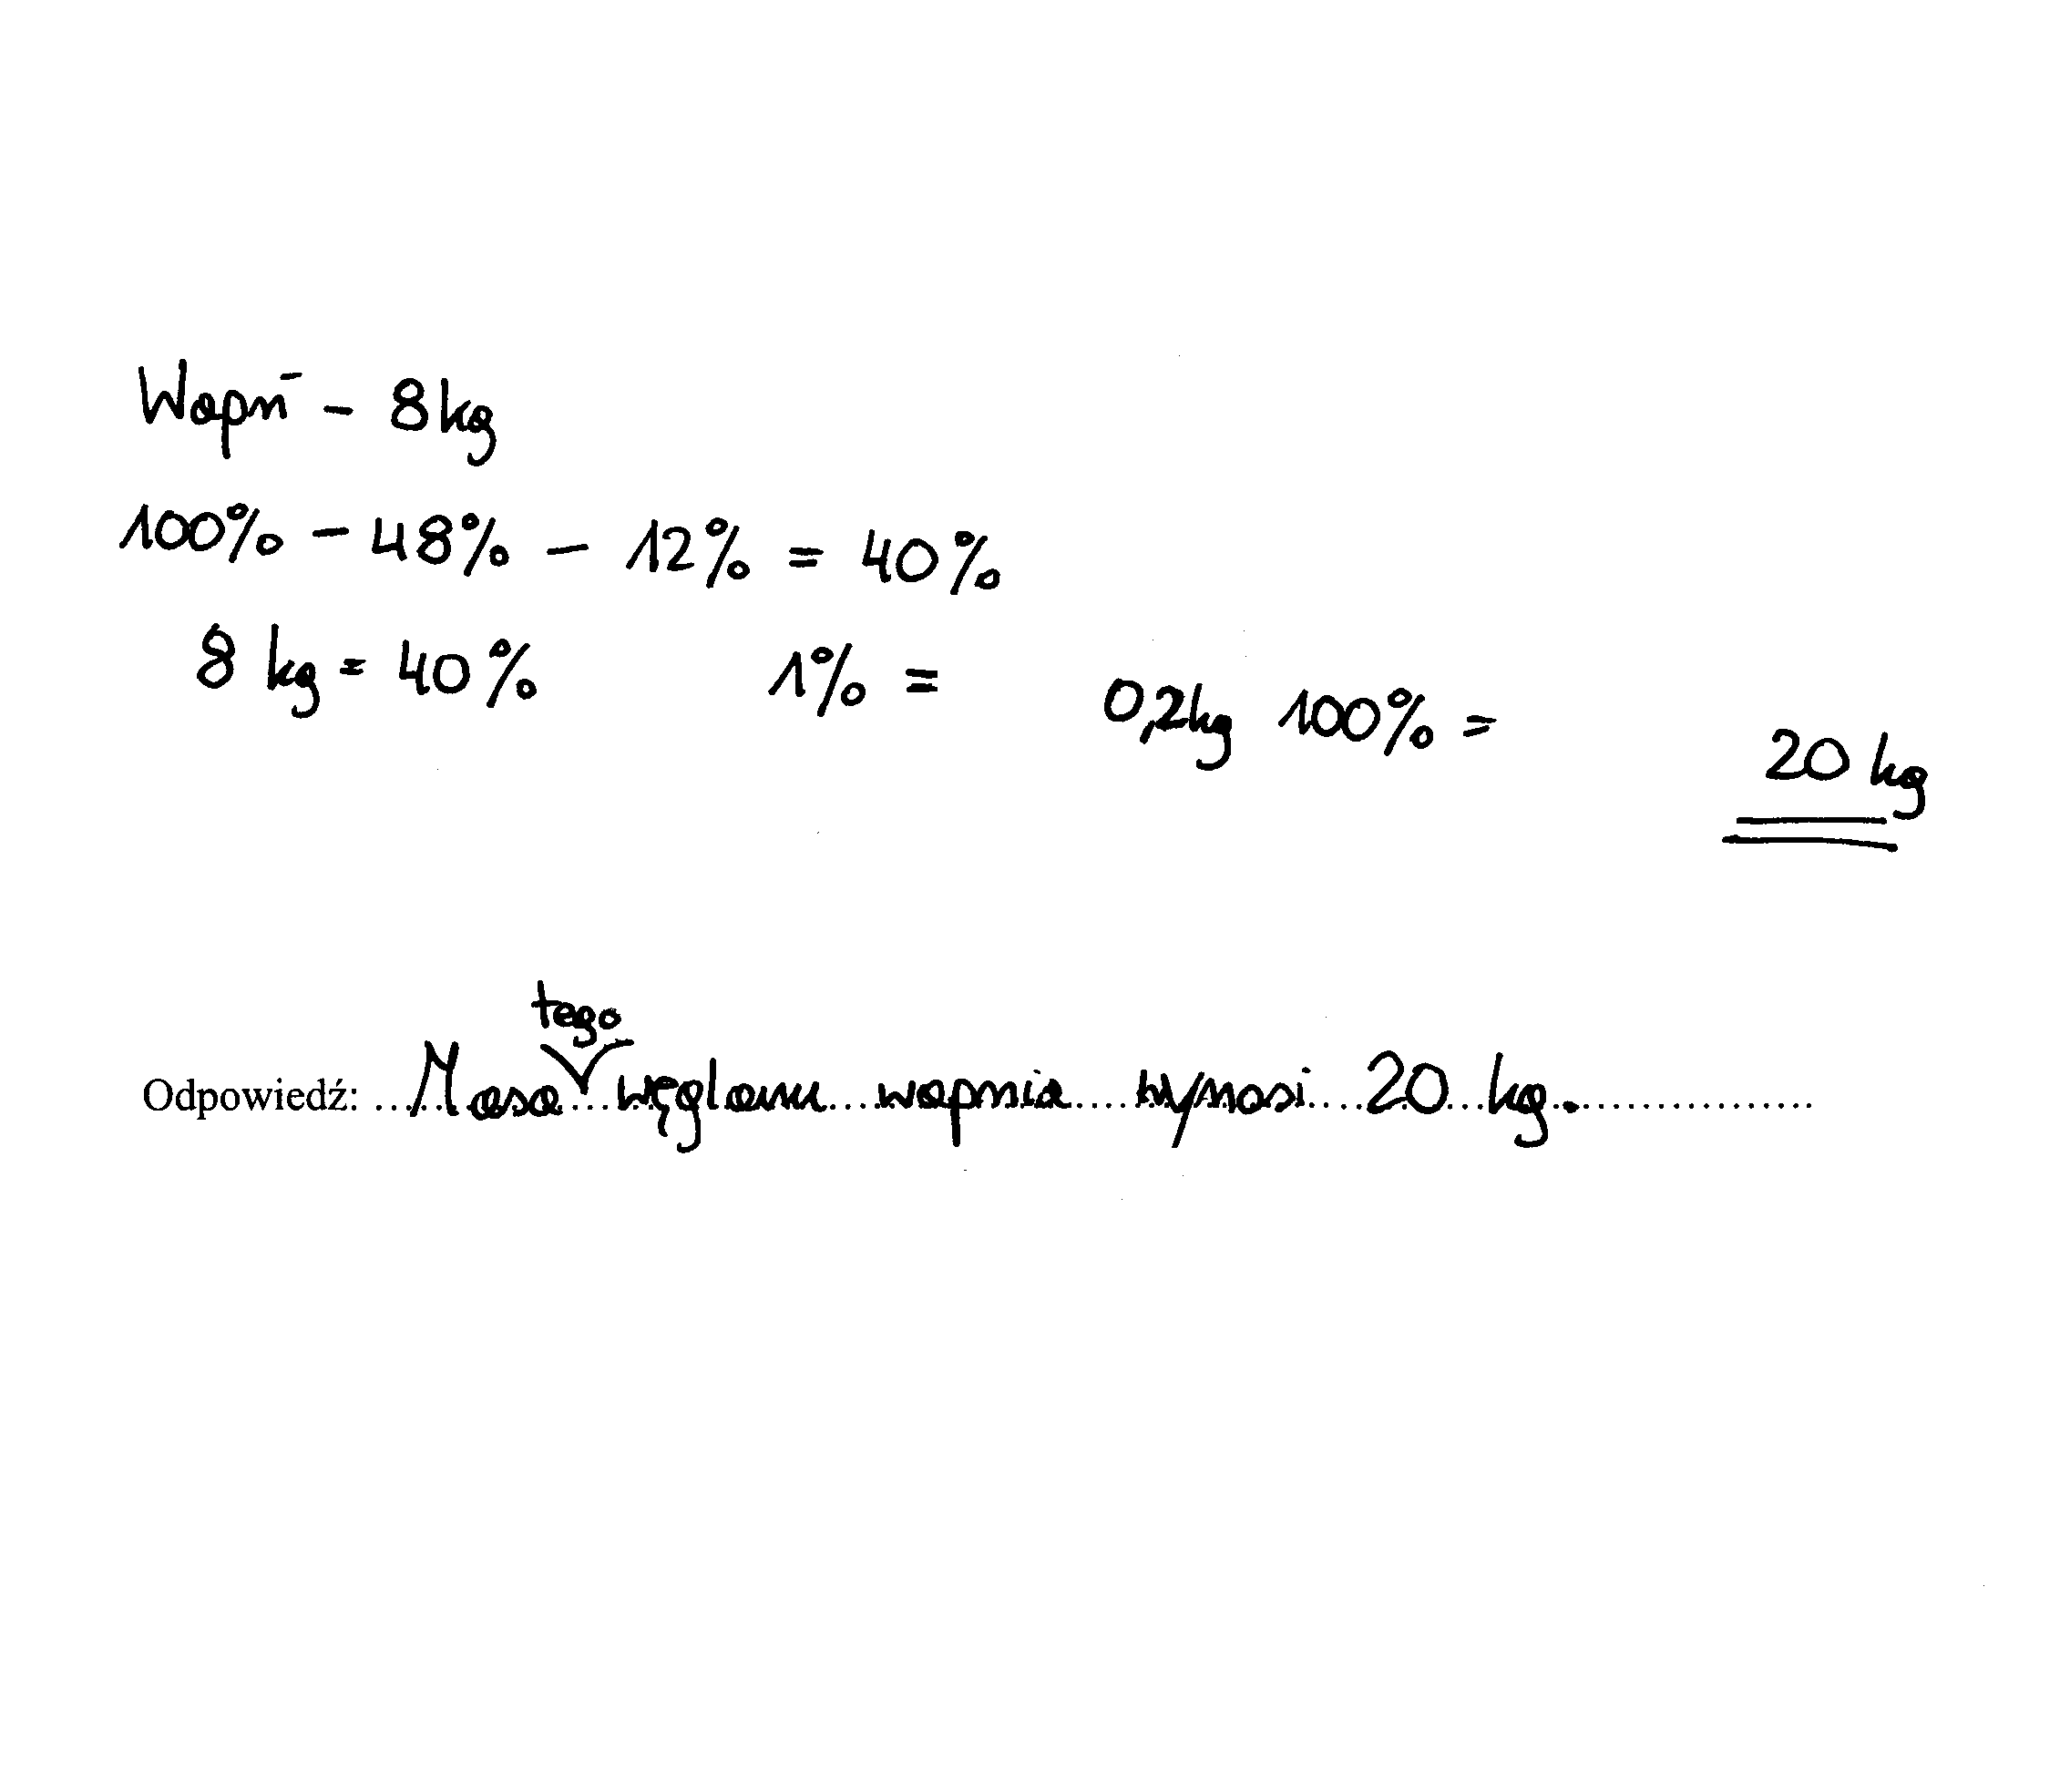 Wapń - 8 kg
100% - 48% - 12% = 40%
8 kg = 40% 1% = 0,2kg 100% = 20 kg
tego
Odpowiedź: Masa węglanu wapnia wynosi 20 kg.